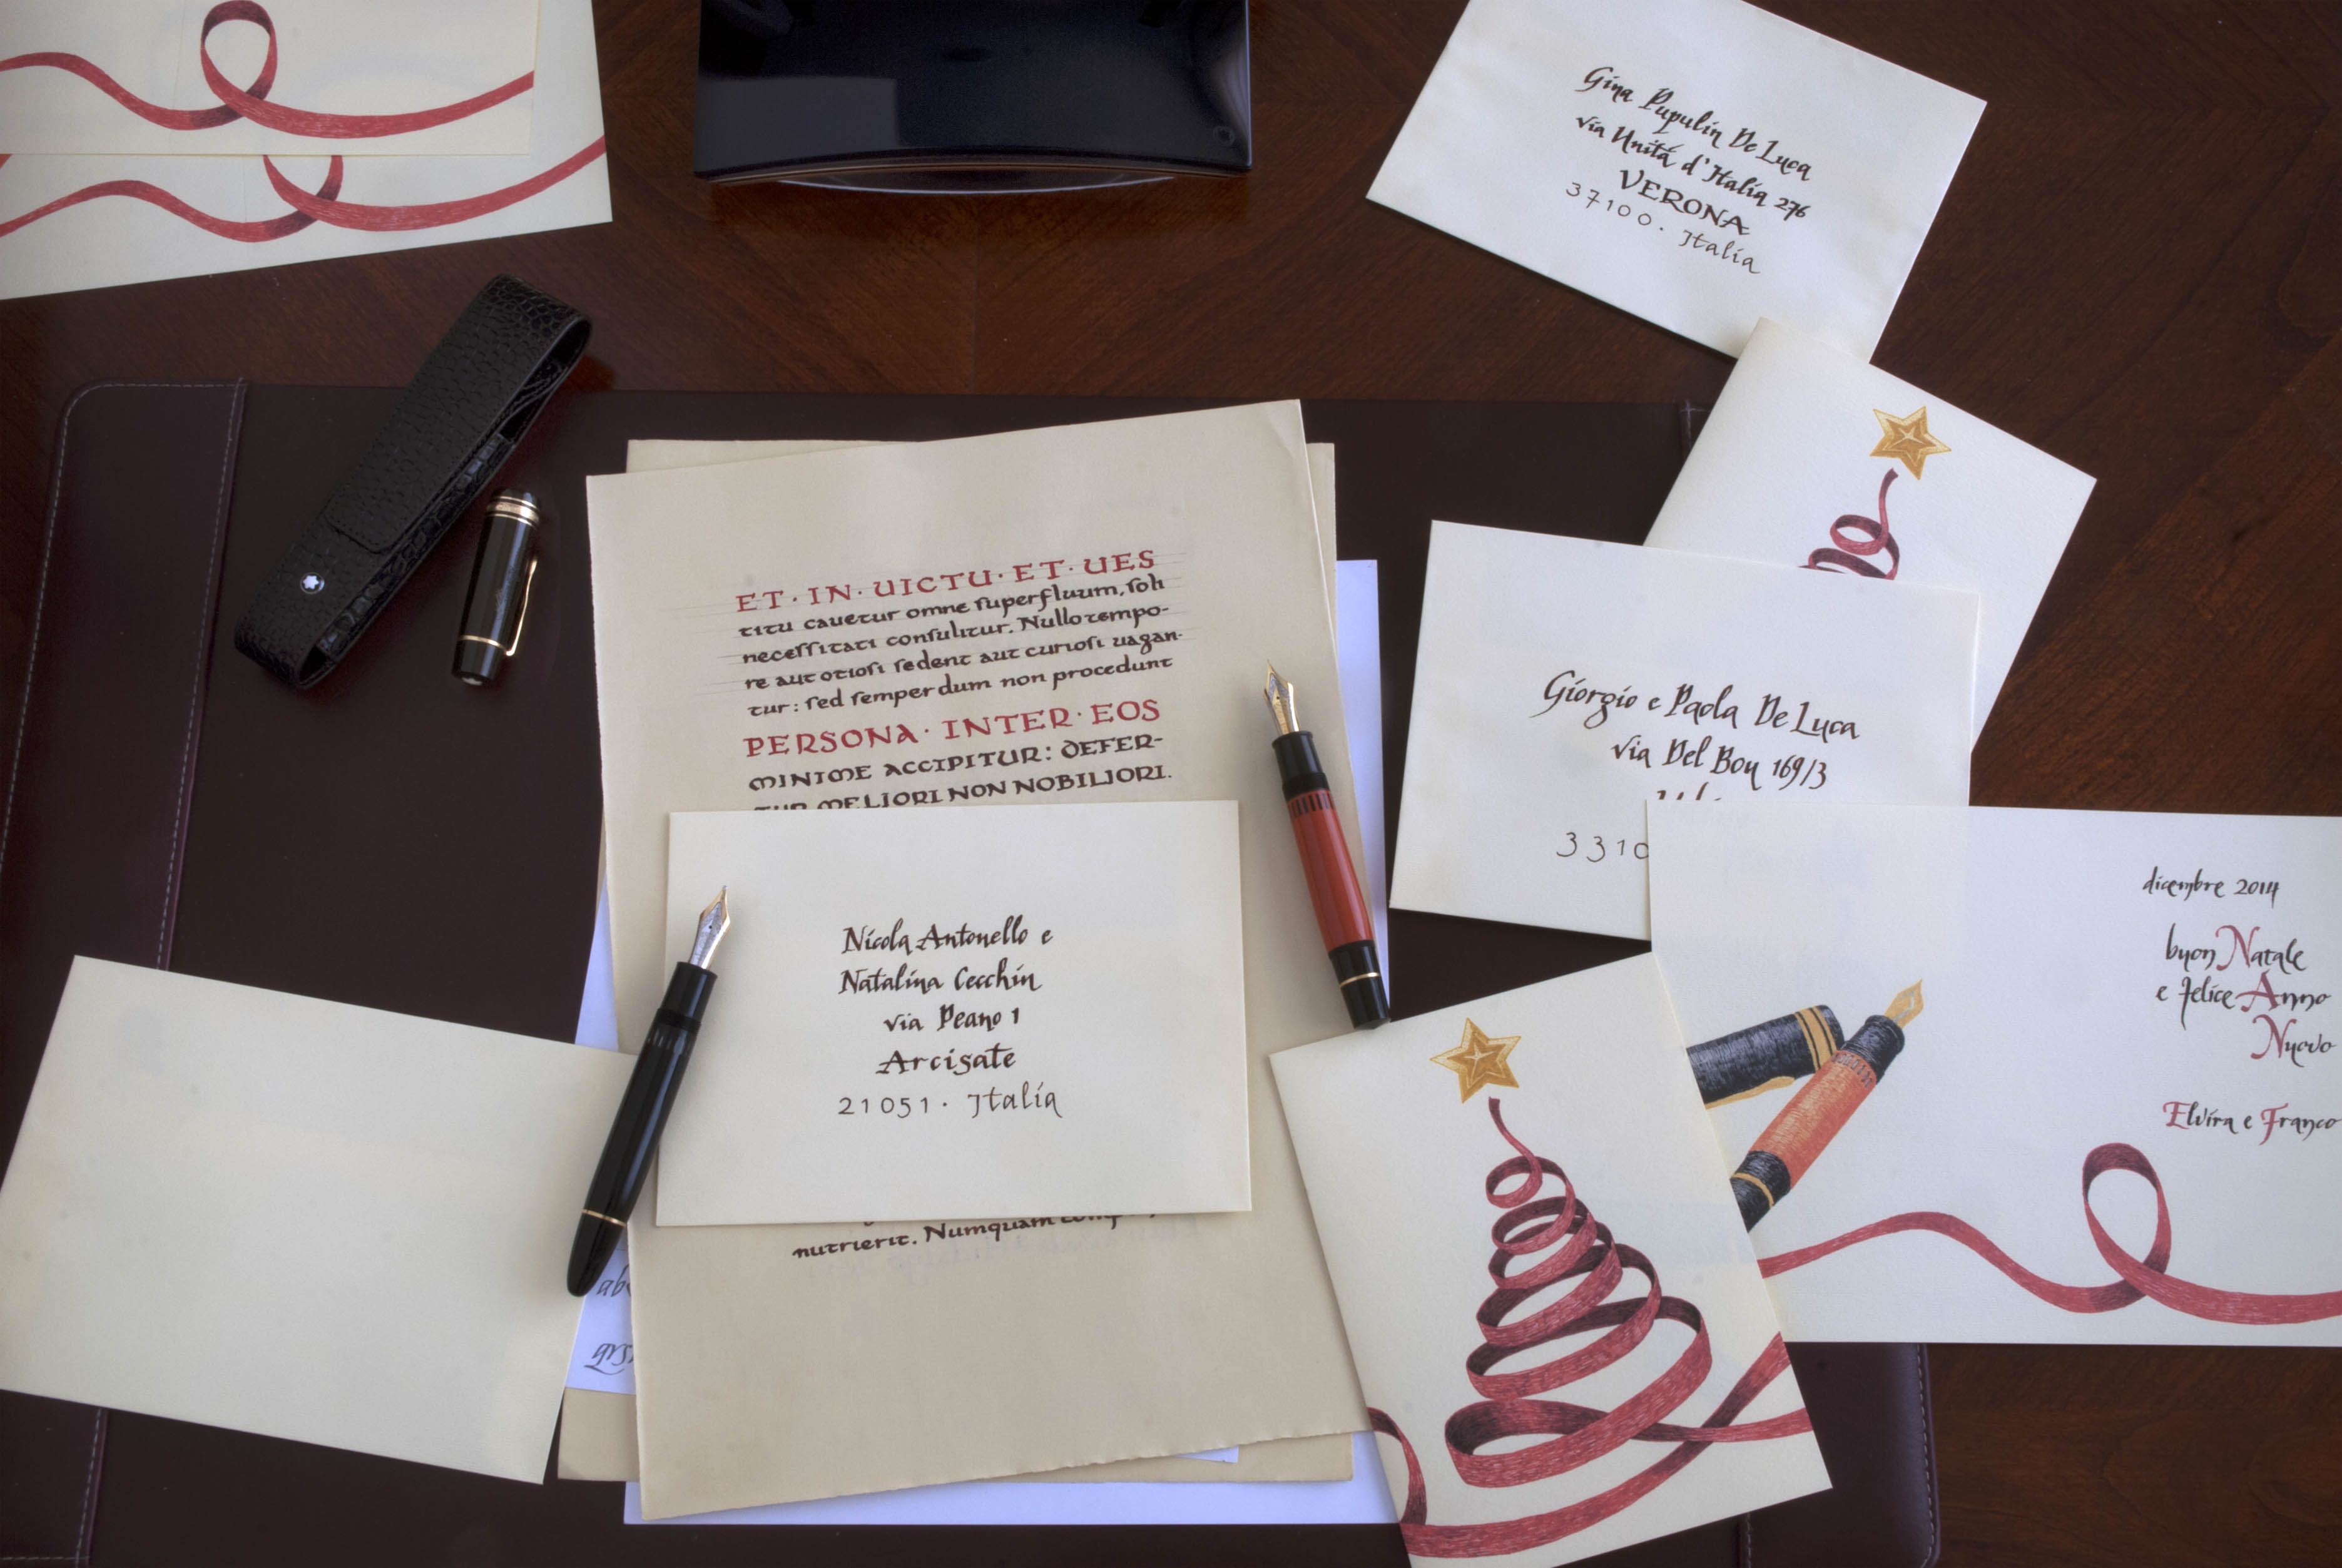 Gina Pupulin De Luca
via Unitá d'Italia 276
VERONA
37100 · Italia
ET · IN · UICTU · ET · UES
titu cauetur omne superfluum, soli
necessitati consulitur. Nullo tempo-
re aut otiosi sedent aut curiosi uagan-
tur: sed semper dum non procedunt
PERSONA · INTER · EOS
MINIME ACCIPITUR: DEFER-
TUR MELIORI NON NOBILIORI.
nutrierit. Numquam
Giorgio e Paola De Luca
via Del Bon 169/3
3310
Nicola Antonello e
Natalina Cecchin
via Peano 1
Arcisate
21051 · Italia
dicembre 2014
buon Natale
e felice Anno
Nuovo
Elvira e Franco